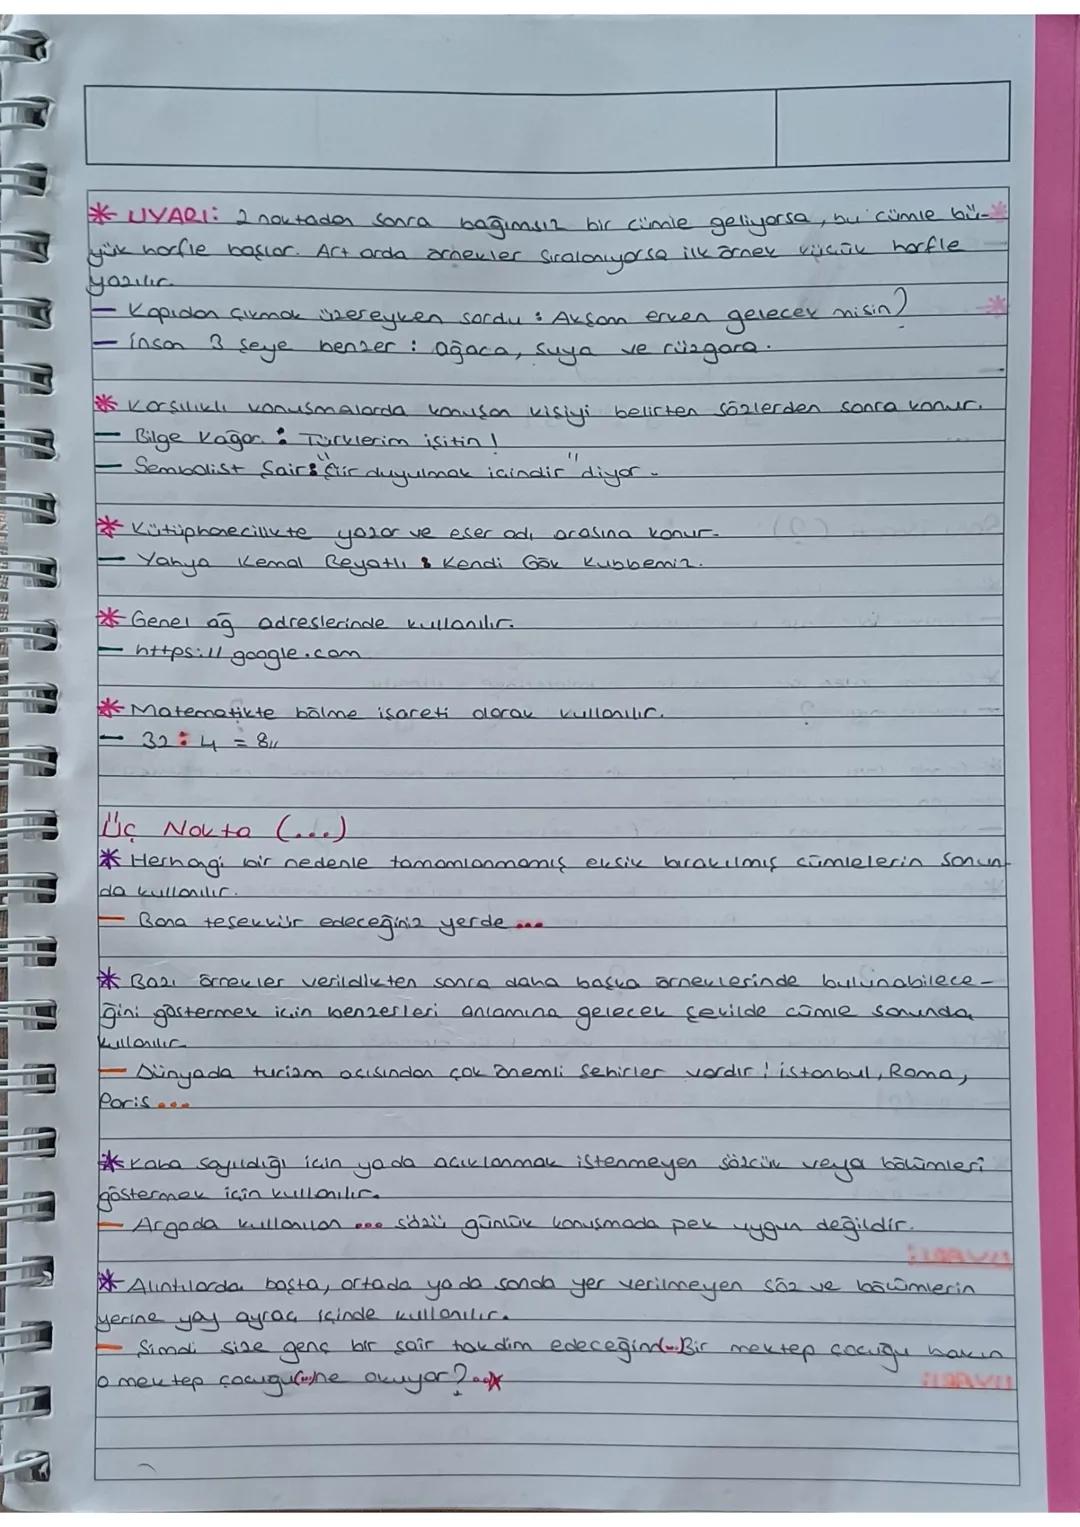 * UYARI: 2 noktadan sonra bağımsız bir cümle geliyorsa, bu cümle bü-
yük harfle başlar. Art arda örnekler sıralanıyorsa ilk örnek küçük harfle
yazılır.
– Kapıdan çıkmak üzereyken sordu : Akşam erken gelecek misin?
– İnsan 3 şeye benzer : ağaca, suya ve rüzgara.
* Karşılıklı konuşmalarda konuşan kişiyi belirten sözlerden sonra konur.
– Bilge Kağan : Türklerim işitin!
– Sembolist Şair: "Şiir duyulmak içindir" diyor.
* Kütüphanecilikte yazar ve eser adı arasına konur.
– Yahya Kemal Beyatlı : Kendi Gök Kubbemiz.
* Genel ağ adreslerinde kullanılır.
– https://google.com
* Matematikte bölme işareti olarak kullanılır.
– 32 : 4 = 8//
Üç Nokta (...)
* Herhagi bir nedenle tamamlanmamış eksik bırakılmış cümlelerin sonun-
da kullanılır.
– Bana teşekkür edeceğiniz yerde ...
* Bazı örnekler verildikten sonra daha başka örneklerinde bulunabilece-
ğini göstermek için benzerleri anlamına gelecek şekilde cümle sonunda
kullanılır.
– Dünyada turizm açısından çok önemli şehirler vardır: İstanbul, Roma,
Paris ...
* Kaba sayıldığı için ya da açıklanmak istenmeyen sözcük veya bölümleri
göstermek için kullanılır.
– Argoda kullanılan ... sözü günlük konuşmada pek uygun değildir.
* Alıntılarda başta, ortada ya da sonda yer verilmeyen söz ve bölümlerin
yerine yay ayraç içinde kullanılır.
– Şimdi size genç bir şair takdim edeceğim(...)Bir mektep çocuğu bakın
o mektep çocuğu(...)ne okuyor?...